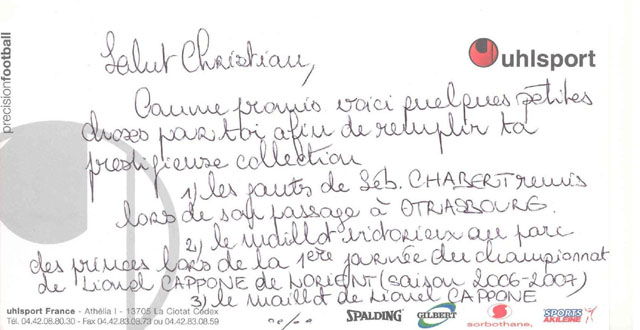 Salut Christian,
uhlsport
precisionfootball
Comme promis voici quelques petites
choses par toi afin de remplir ta
prestigieuse collection
1) les gants de Séb. CHABERT remis
lors de son passage à STRASBOURG.
2) le maillot victorieux au parc
des princes lors de la 1ère journée du championnat
de Lionel CAPPONE de LORIENT (saison 2006-2007)
3) le maillot de Lionel CAPPONE
uhlsport France - Athélia I - 13705 La Ciotat Cédex
Tél. 04.42.08.80.30 - Fax 04.42.83.09.73 ou 04.42.83.08.59
SPALDING
GILBERT
sorbothane.
SPORTS
AKILEINE